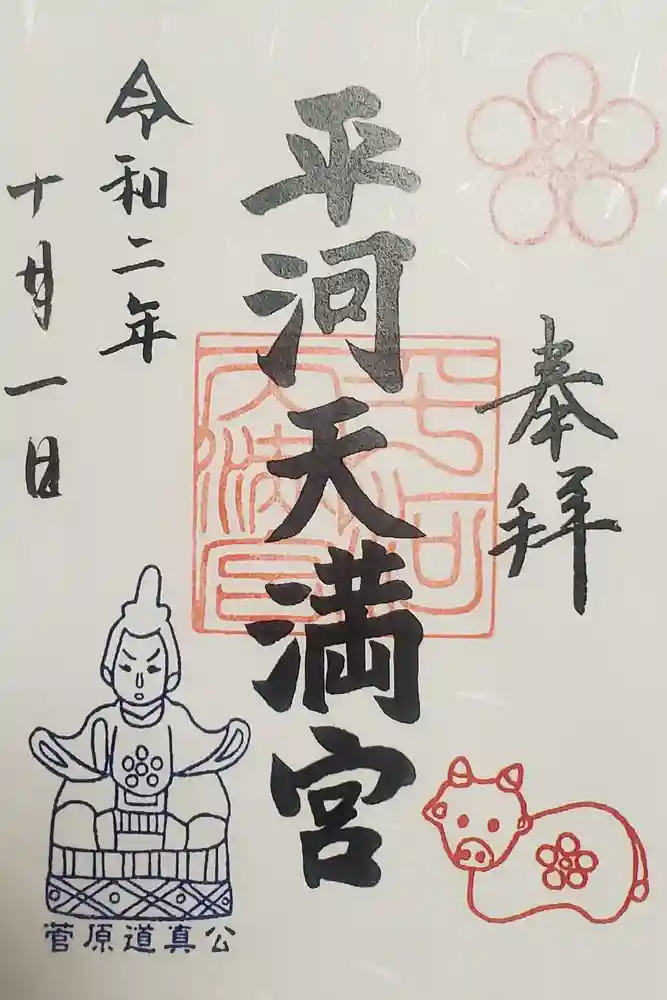 奉拝
平河天満宮
令和二年
十月一日
菅原道真公